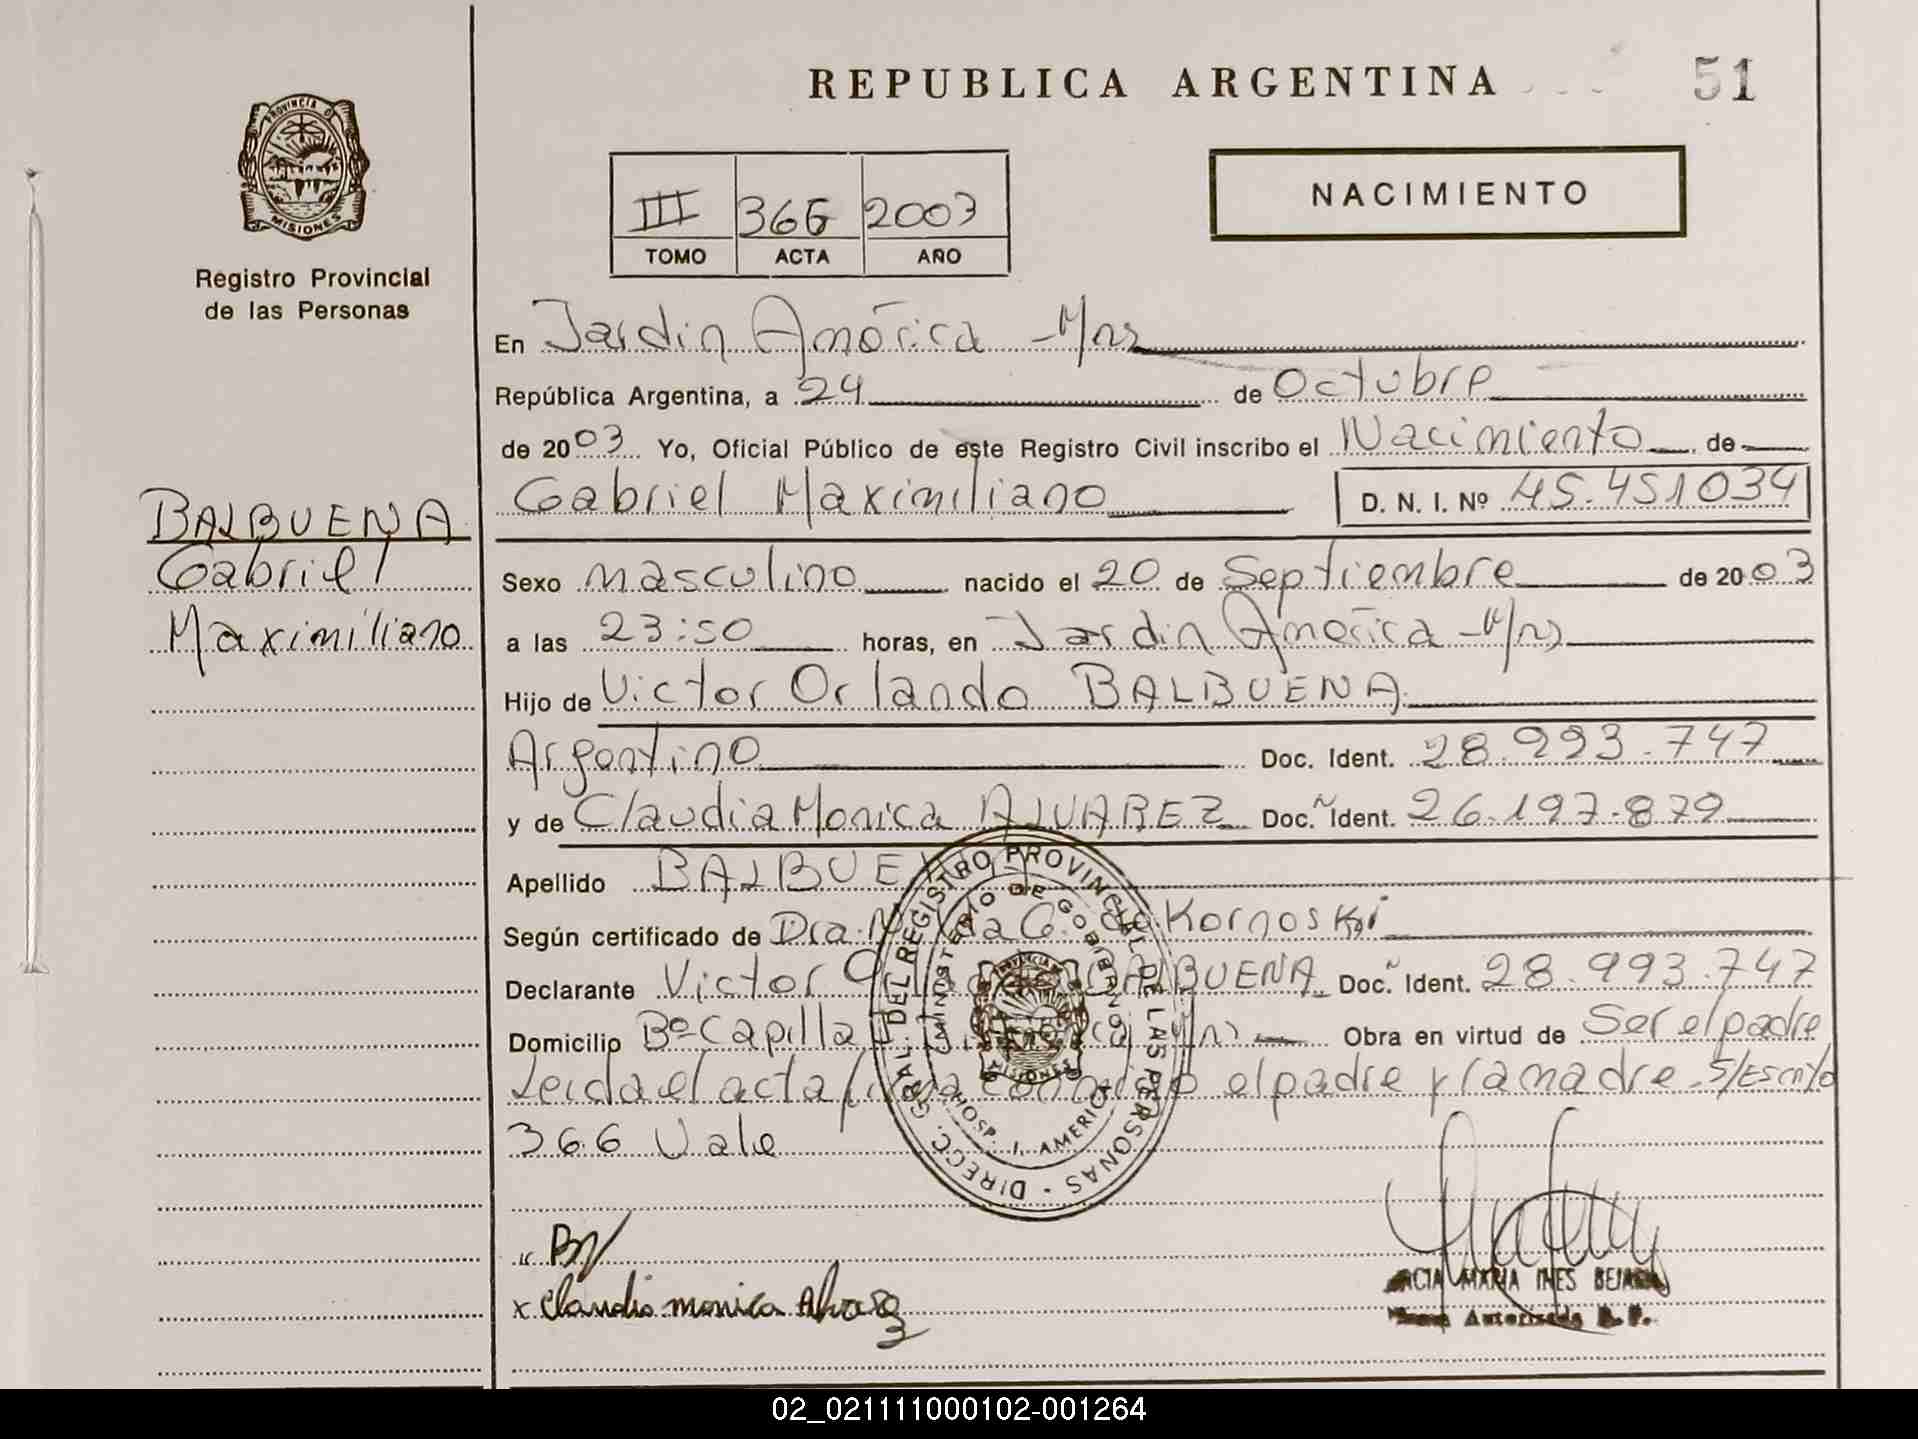 REPUBLICA ARGENTINA
51
PROVINCIA DE
MISIONES
Registro Provincial
de las Personas
III 366 2003
TOMO ACTA AÑO
NACIMIENTO
En Jardin América - Mns
República Argentina, a 24 de Octubre
de 2003 Yo, Oficial Público de este Registro Civil inscribo el Nacimiento de
Gabriel Maximiliano D. N. I. Nº 45.451034
BALBUENA
Gabriel
Maximiliano
Sexo masculino nacido el 20 de Septiembre de 2003
a las 23:50 horas, en Jardin América - Mns
Hijo de Victor Orlando BALBUENA
Argentino Doc. Ident. 28.993.747
y de Claudia Monica ALVAREZ Doc. Ident. 26.197.879
Apellido BALBUENA
Según certificado de Dra. G. de Kornoski
Declarante Victor Orlando BALBUENA Doc. Ident. 28.993.747
Domicilio Bº Capilla J. América Mns Obra en virtud de Ser el padre
Leida el acta firma conmigo el padre y la madre. S/Escrito
366 Vale
DIRECC. GRAL. DEL REGISTRO PROVINCIAL DE LAS PERSONAS
MINISTERIO DE GOBIERNO
HOSP. J. AMERICA
MISIONES
x Claudia monica Alvarez
MARIA INES
Autorizada
02_021111000102-001264